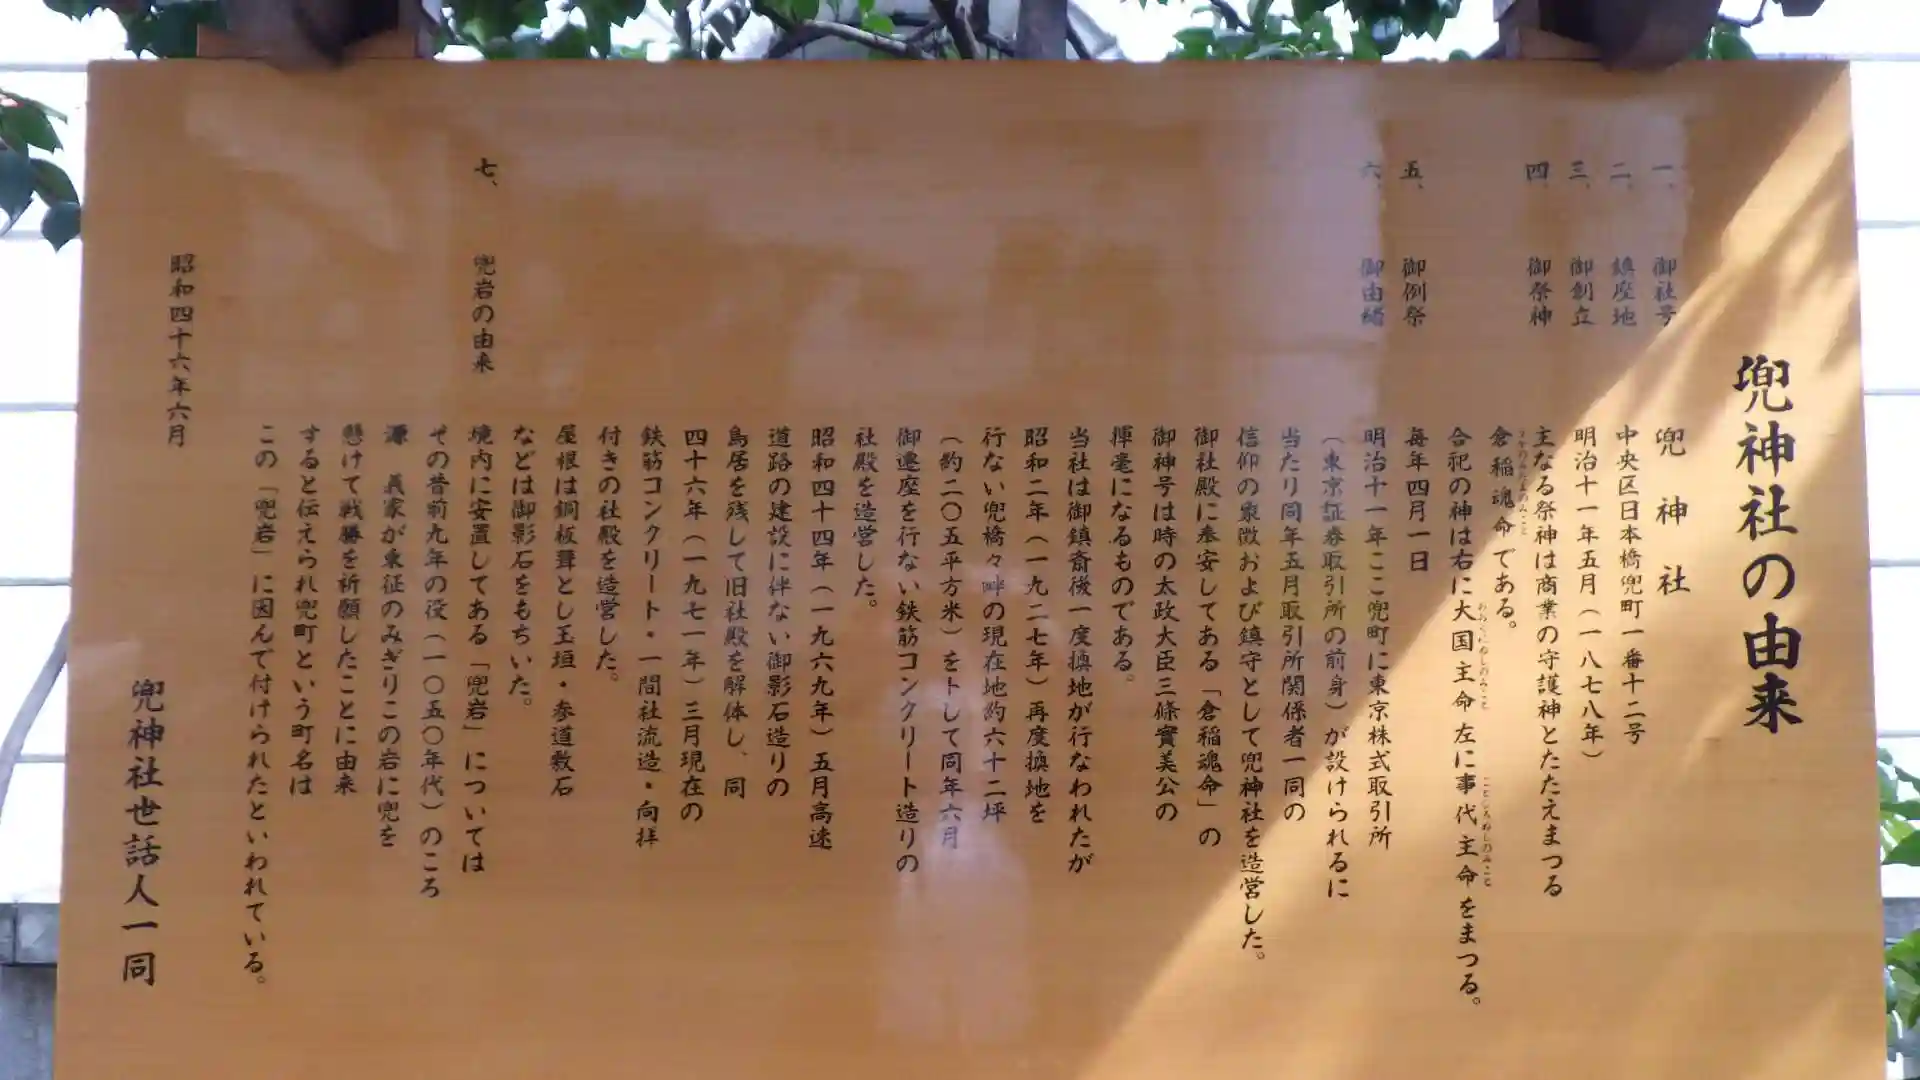 兜神社の由来
一、 御社号 兜神社
二、 鎮座地 中央区日本橋兜町一番十二号
三、 御創立 明治十一年五月（一八七八年）
四、 御祭神 主なる祭神は商業の守護神とたたえまつる
倉稲魂命である。
合祀の神は右に大国主命 左に事代主命をまつる。
五、 御例祭 毎年四月一日
六、 御由緒 明治十一年ここ兜町に東京株式取引所
（東京証券取引所の前身）が設けられるに
当たり同年五月取引所関係者一同の
信仰の象徴および鎮守として兜神社を造営した。
御社殿に奉安してある「倉稲魂命」の
御神号は時の太政大臣三條實美公の
揮毫になるものである。
当社は御鎮斎後一度換地が行なわれたが
昭和二年（一九二七年）再度換地を
行ない兜橋々畔の現在地約六十二坪
（約二〇五平方米）をトして同年六月
御遷座を行ない鉄筋コンクリート造りの
社殿を造営した。
昭和四十四年（一九六九年）五月高速
道路の建設に伴ない御影石造りの
鳥居を残して旧社殿を解体し、同
四十六年（一九七一年）三月現在の
鉄筋コンクリート・一間社流造・向拝
付きの社殿を造営した。
屋根は銅板葺とし玉垣・参道敷石
などは御影石をもちいた。
七、 兜岩の由来 境内に安置してある「兜岩」については
その昔前九年の役（一〇五〇年代）のころ
源 義家が東征のみぎりこの岩に兜を
懸けて戦勝を祈願したことに由来
すると伝えられ兜町という町名は
この「兜岩」に因んで付けられたといわれている。
昭和四十六年六月
兜神社世話人一同